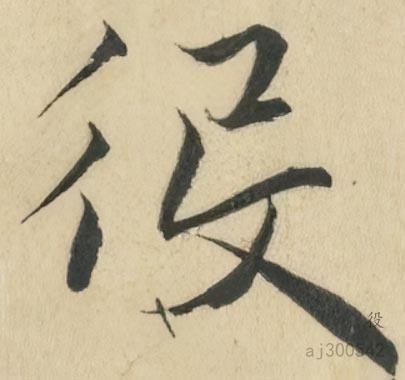 役
役
aj300542